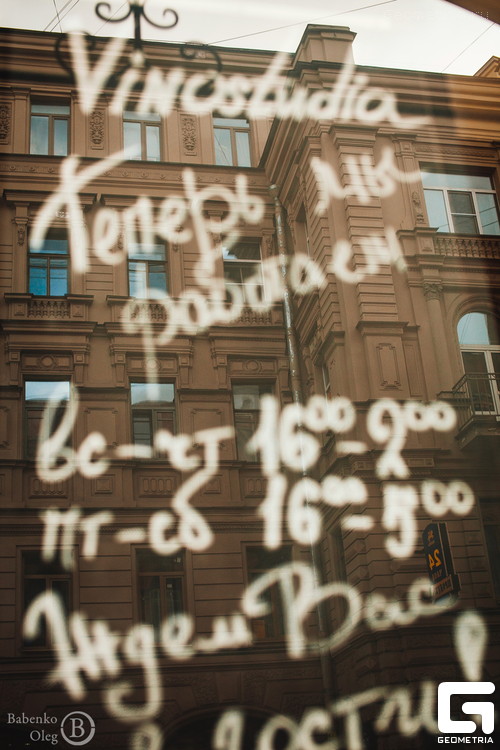 Vinostudia
Теперь мы
работаем
вс-чт 16⁰⁰-2⁰⁰
пт-сб 16⁰⁰-5⁰⁰
Ждем Вас
в гости!
24
Babenko
Oleg B
G
GEOMETRIA